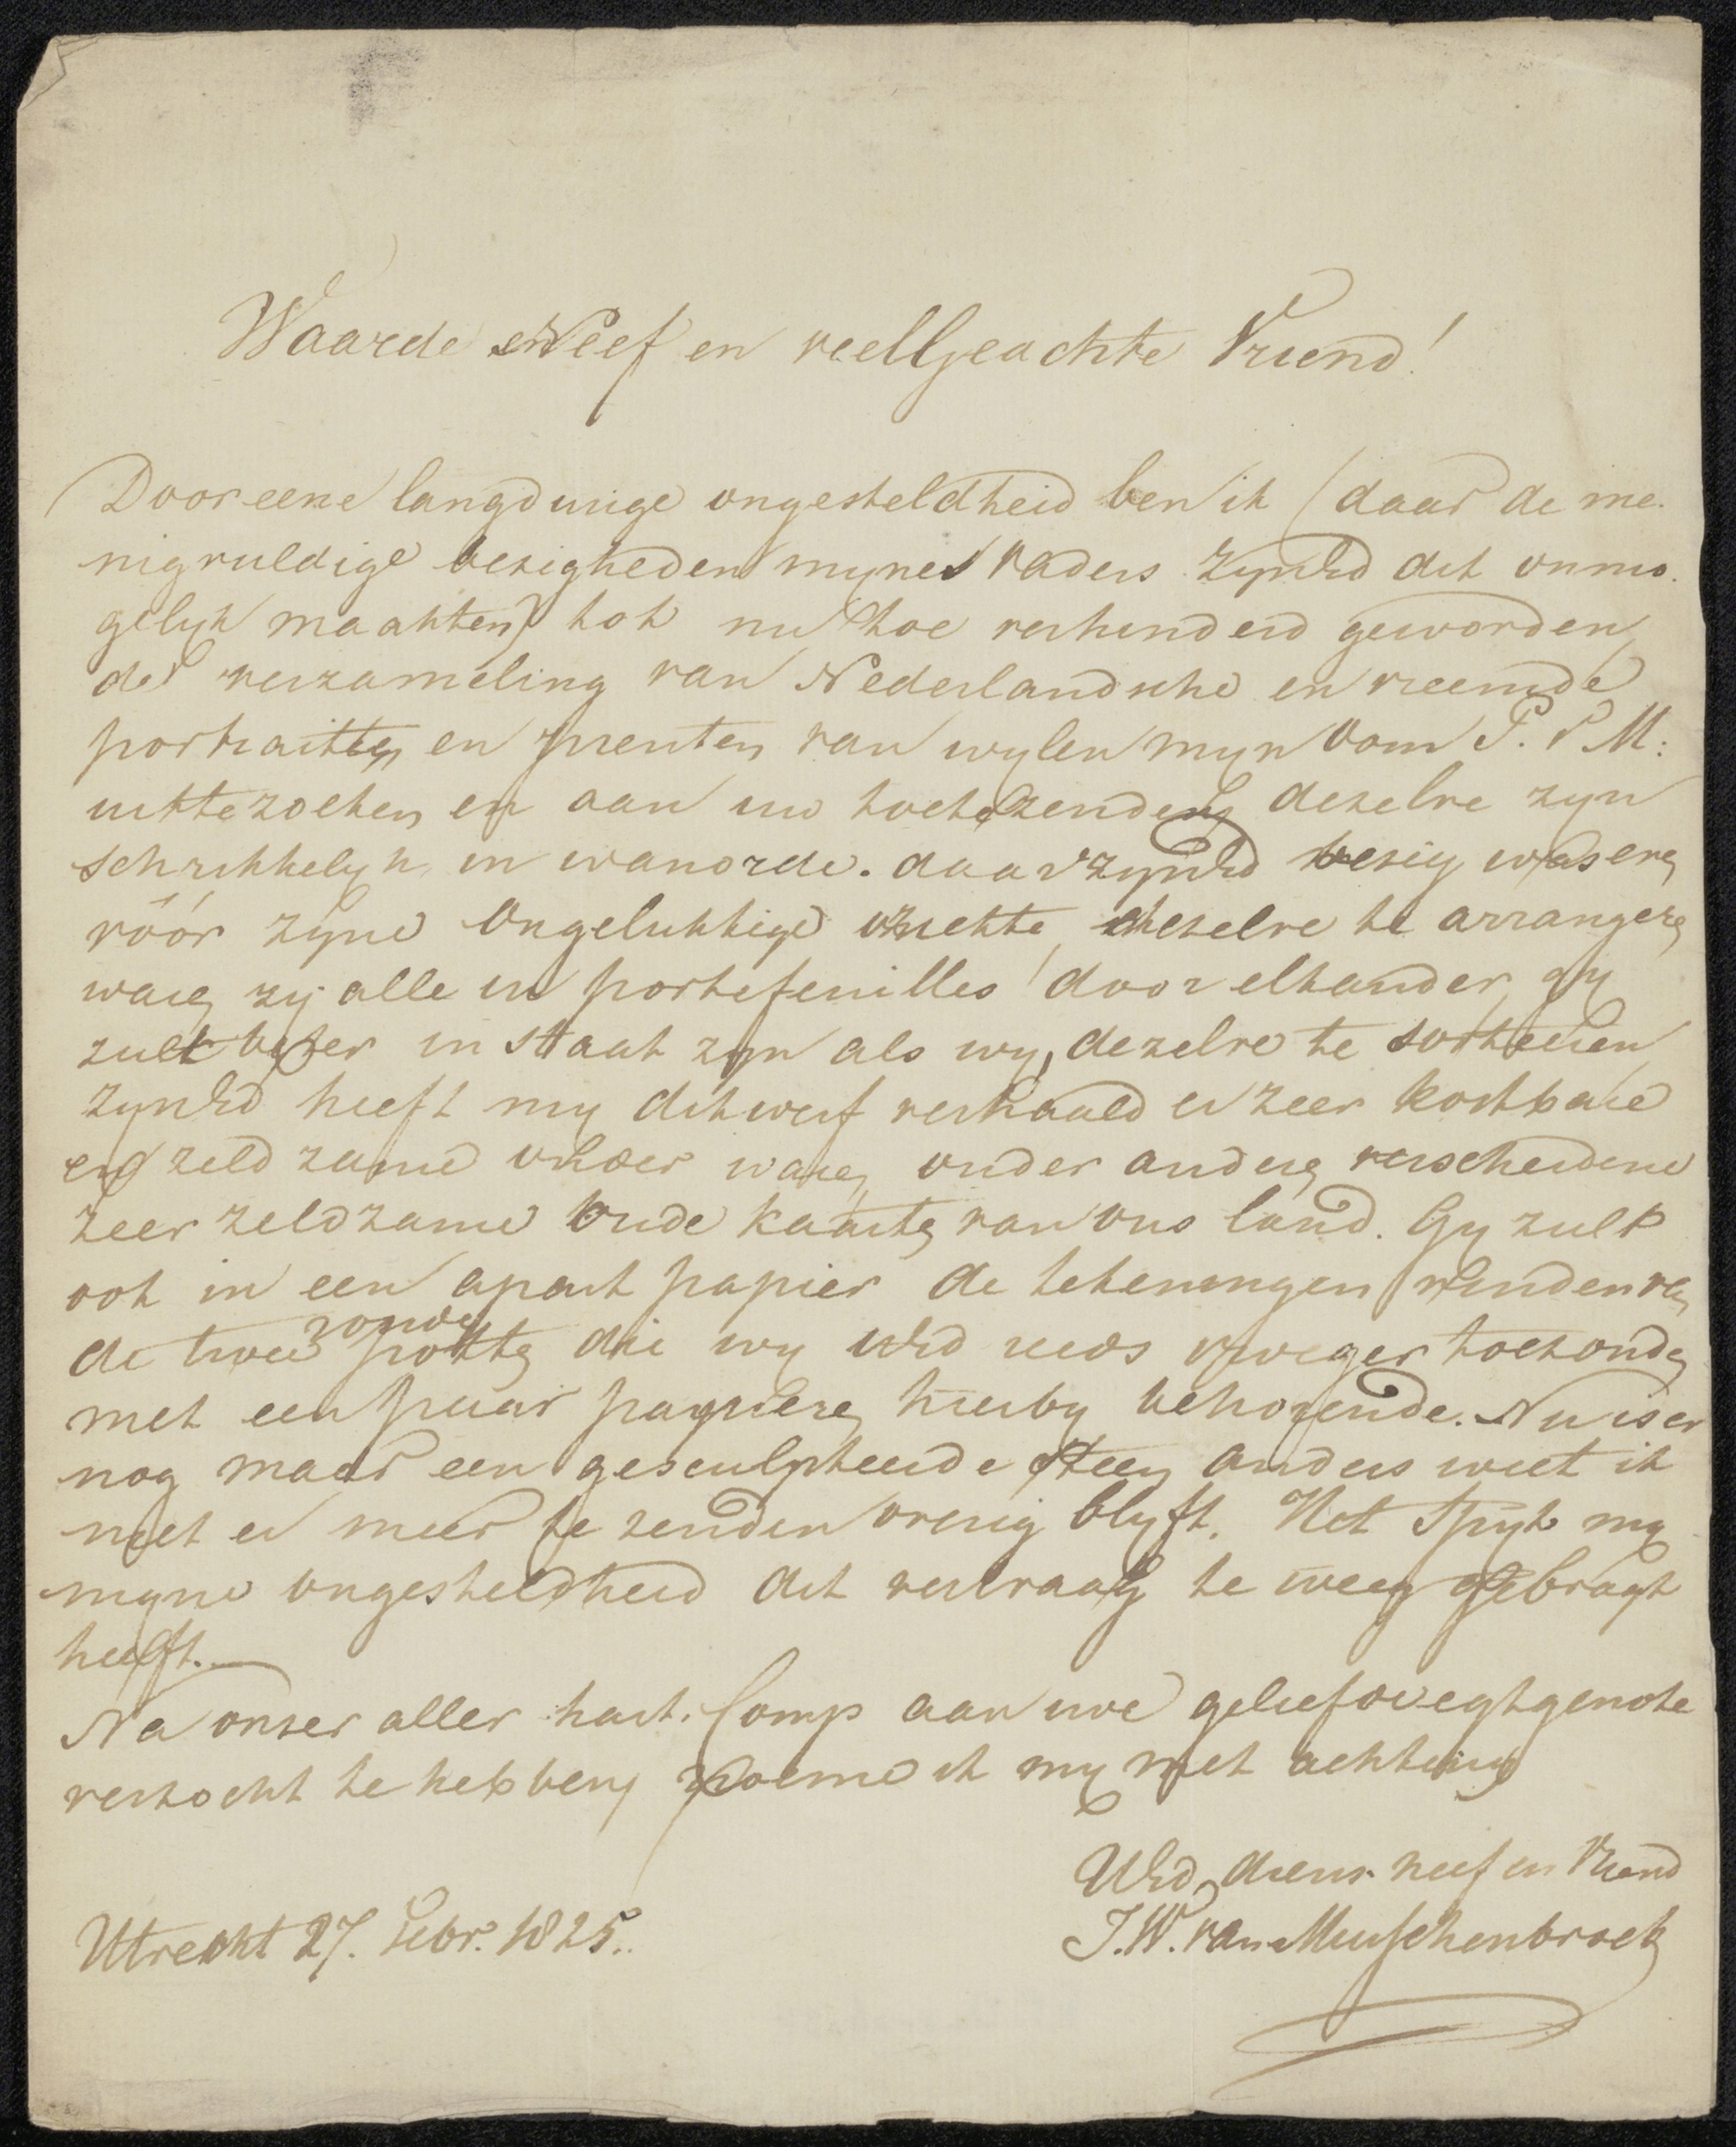 Waarde Neef en veelgeachte Vriend!
Door eene langdurige ongesteldheid ben ik (daar de me-
nigvuldige bezigheden mynes vaders zynEd dit onmo-
gelyk maakten) tot nu toe verhinderd geworden
de verzameling van Nederlandsche en vreemde
portraitten en prenten van wylen myn Oom P. v M:
uittezoeken en aan uw toetezenden, dezelve zyn
schrikkelyk in wanorde. daar zynEd bezig was even
vóór zyne ongelukkige ziekte dezelve te arrangeren
waren zij alle in portefeuilles door elkander, gy
zult beter in staat zyn als wy, dezelve te sorteeren
zynEd heeft my dikwerf verhaald er zeer kostbare
en zeldzame onder waren, onder andere verscheidene
zeer zeldzame oude kaarten van ons land. Gy zult
ook in een apart papier de tekeningen vinden van
de twee romeg
potten die wy UEd reeds vroeger toezonden
met een paar papieren hierby behorende. Nu is er
nog maar een gesculpteerde steen anders weet ik
niet er meer te zenden overig blyft. Het Spyt my
myne ongesteldheid dit vertraag te weeg gebragt
heeft.
Na onser aller hart. Comp aan uwe geliefde egtgenote
verzocht te hebben, noeme ik my met achting
UEd. diens. neef en Vriend
J.W. van Musschenbroek
Utrecht 27. Febr. 1825.